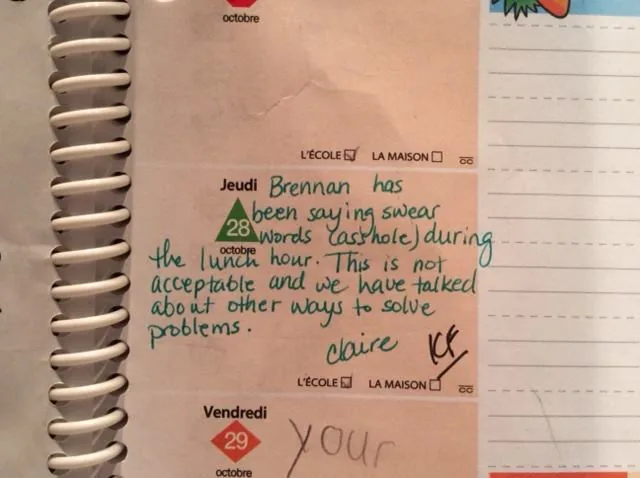 octobre
L'ÉCOLE LA MAISON
Jeudi Brennan has
28 been saying swear
octobre words (asshole) during
the lunch hour. This is not
acceptable and we have talked
about other ways to solve
problems.
claire KF
L'ÉCOLE LA MAISON
Vendredi
29 your
octobre